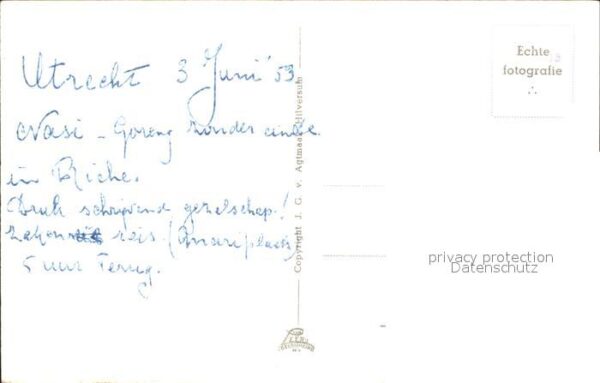 Utrecht 3 Juni '53
Nasi - Goreng zonder einde
in Riche.
Druk schrijvend gezelschap!
zaken reis.
5 uur Terug.
Copyright J. G. v. Agtmaal Hilversum
Echte
fotografie
privacy protection
Datenschutz